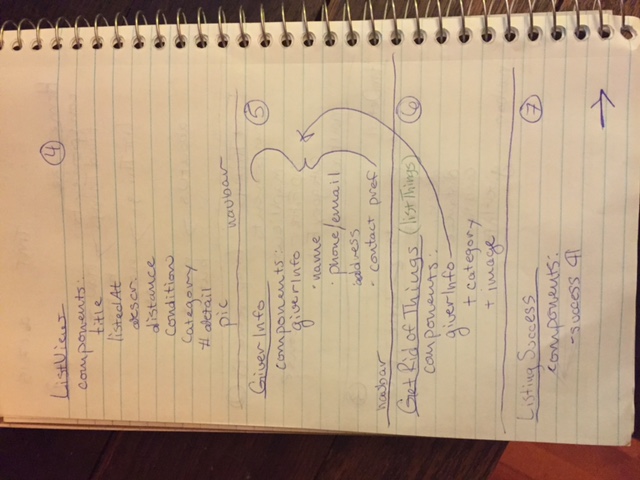 ListView ④
components:
title
listedAt
descr.
distance
condition
category
# detail
pic
navbar
GiverInfo ⑤
components:
giverInfo
· name
· phone/email
address
· contact pref
navbar
Get Rid of Things (listThings) ⑥
components:
giverInfo
+ category
+ image
Listing Success ⑦
components:
- success ¶
→